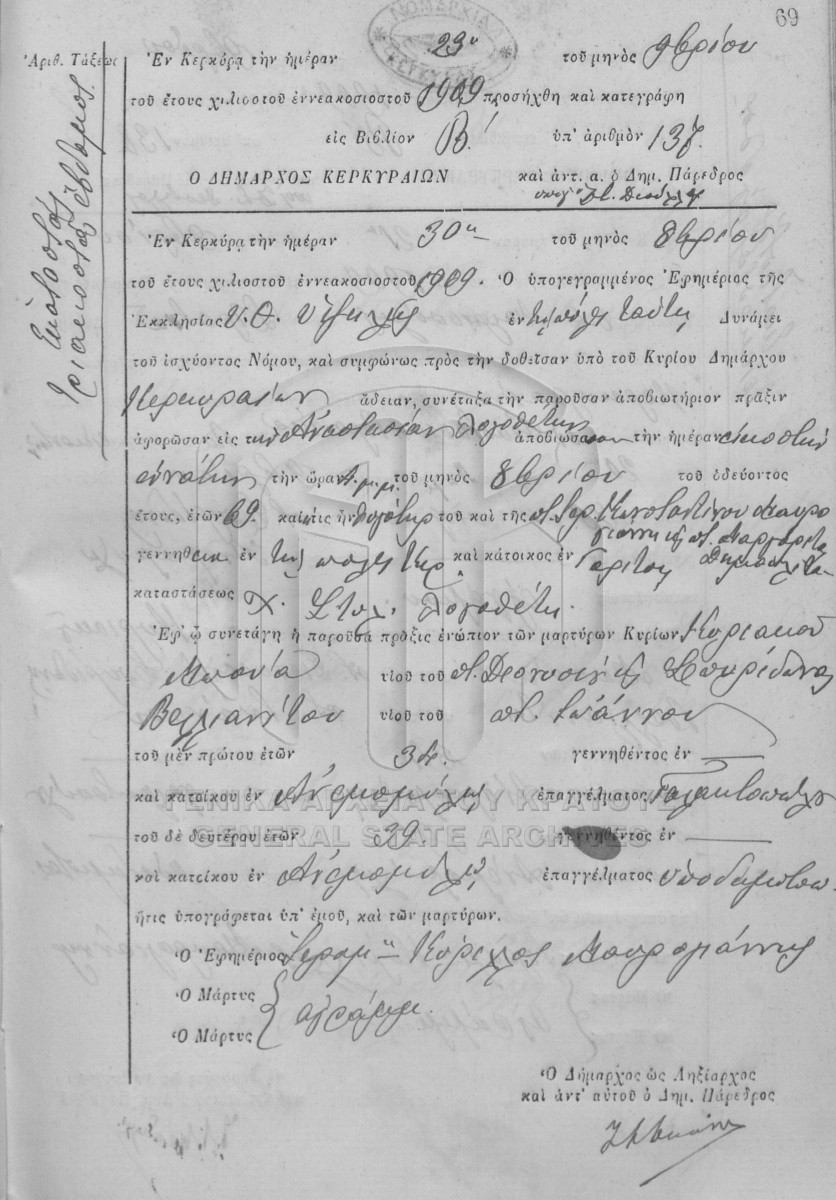 69
ΝΟΜΑΡΧΙΑ
Ἀριθ. Τάξεως
Ἑκατοστὸς
τριακοστὸς ἕβδομος
Ἐν Κερκύρᾳ τὴν ἡμέραν 23ην τοῦ μηνὸς 9βρίου
τοῦ ἔτους χιλιοστοῦ ἐννεακοσιοστοῦ 1909 προσήχθη καὶ κατεγράφη
εἰς Βιβλίον Β΄ ὑπ' ἀριθμὸν 137.
Ο ΔΗΜΑΡΧΟΣ ΚΕΡΚΥΡΑΙΩΝ καὶ ἀντ. α. ὁ Δημ. Πάρεδρος
Ἐν Κερκύρᾳ τὴν ἡμέραν 30ην τοῦ μηνὸς 8βρίου
τοῦ ἔτους χιλιοστοῦ ἐννεακοσιοστοῦ 1909. Ὁ ὑπογεγραμμένος Ἐφημέριος τῆς
Ἐκκλησίας Υ. Θ. ἐν τῇ πόλει ταύτῃ Δυνάμει
τοῦ ἰσχύοντος Νόμου, καὶ συμφώνως πρὸς τὴν δοθεῖσαν ὑπὸ τοῦ Κυρίου Δημάρχου
Κερκυραίων ἄδειαν, συνέταξα τὴν παροῦσαν ἀποβιωτήριον πρᾶξιν
ἀφορῶσαν εἰς τὴν Ἀναστασίαν Λογοθέτη ἀποβιώσασαν τὴν ἡμέραν εἰκοστὴν
ἐνάτην τὴν ὥραν 4 μ.μ. τοῦ μηνὸς 8βρίου τοῦ ὁδεύοντος
ἔτους, ἐτῶν 69. καὶ ἥτις ἦν θυγάτηρ τοῦ καὶ τῆς Κωνσταντίνου Μαυρο
γιάννη κ π. Μαργαρίτας
γεννηθεῖσα ἐν τῇ πόλει Κερ. καὶ κάτοικος ἐν Γαρίτσῃ
καταστάσεως Χ. Στυλ. Λογοθέτη.
Ἐφ' ᾧ συνετάγη ἡ παροῦσα πρᾶξις ἐνώπιον τῶν μαρτύρων Κυρίων Κυριακοῦ
Μπονία υἱοῦ τοῦ π. Διονυσίου κ Σπυρίδωνος
Βελλιανίτου υἱοῦ τοῦ π. Ἰωάννου
τοῦ μὲν πρώτου ἐτῶν 34. γεννηθέντος ἐν —
καὶ κατοίκου ἐν Ἀνεμομύλῳ ἐπαγγέλματος Γαλακτοπώλου
τοῦ δὲ δευτέρου ἐτῶν 39 γεννηθέντος ἐν —
καὶ κατοίκου ἐν Ἀνεμομύλῳ ἐπαγγέλματος ὑποδηματοπ.
ἥτις ὑπογράφεται ὑπ' ἐμοῦ, καὶ τῶν μαρτύρων.
Ὁ Ἐφημέριος Ἱερομ. Κύριλλος Μαυρογιάννης
Ὁ Μάρτυς
ἀγράμμ.
Ὁ Μάρτυς
Ὁ Δήμαρχος ὡς Ληξίαρχος
καὶ ἀντ' αὐτοῦ ὁ Δημ. Πάρεδρος
ΓΕΝΙΚΑ ΑΡΧΕΙΑ ΤΟΥ ΚΡΑΤΟΥΣ
GENERAL STATE ARCHIVES